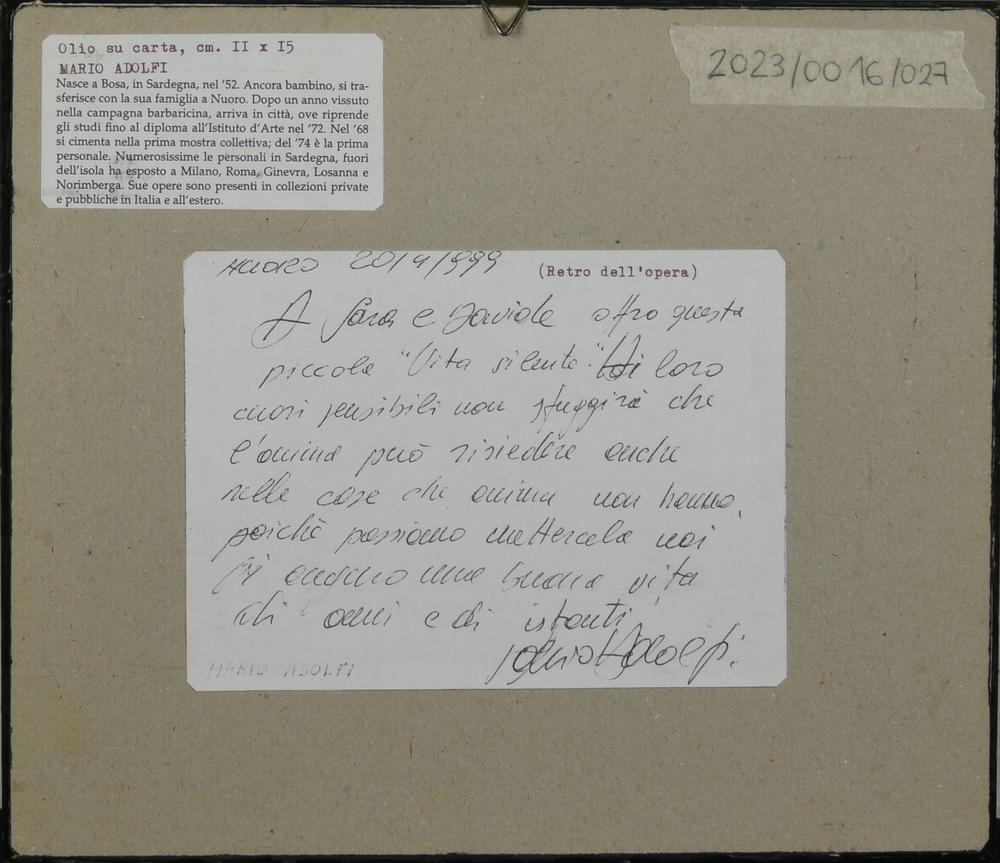 Olio su carta, cm. II x I5
MARIO ADOLFI
Nasce a Bosa, in Sardegna, nel '52. Ancora bambino, si tra-
sferisce con la sua famiglia a Nuoro. Dopo un anno vissuto
nella campagna barbaricina, arriva in città, ove riprende
gli studi fino al diploma all'Istituto d'Arte nel '72. Nel '68
si cimenta nella prima mostra collettiva; del '74 è la prima
personale. Numerosissime le personali in Sardegna, fuori
dell'isola ha esposto a Milano, Roma, Ginevra, Losanna e
Norimberga. Sue opere sono presenti in collezioni private
e pubbliche in Italia e all'estero.
2023/00 16/027
Nuoro 20/4/999 (Retro dell'opera)
A Sara e Davide offro questa
piccola "Vita silente". Ai loro
cuori sensibili non sfuggirà che
l'anima può risiedere anche
nelle cose che anima non hanno,
poichè possiamo mettercela noi
Vi auguro una buona vita
di anni e di istanti,
Mario Adolfi.
MARIO ADOLFI